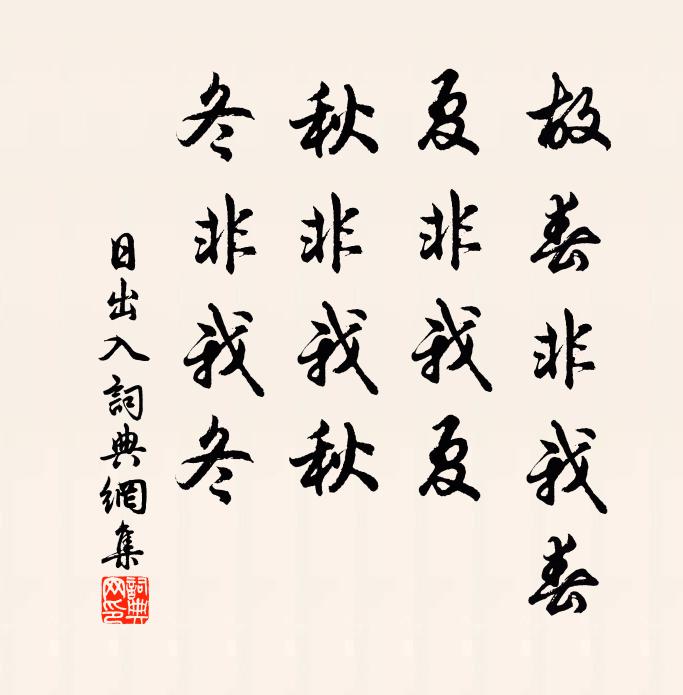 故春非我春
夏非我夏
秋非我秋
冬非我冬
日出入詞典網集
詞典
网印